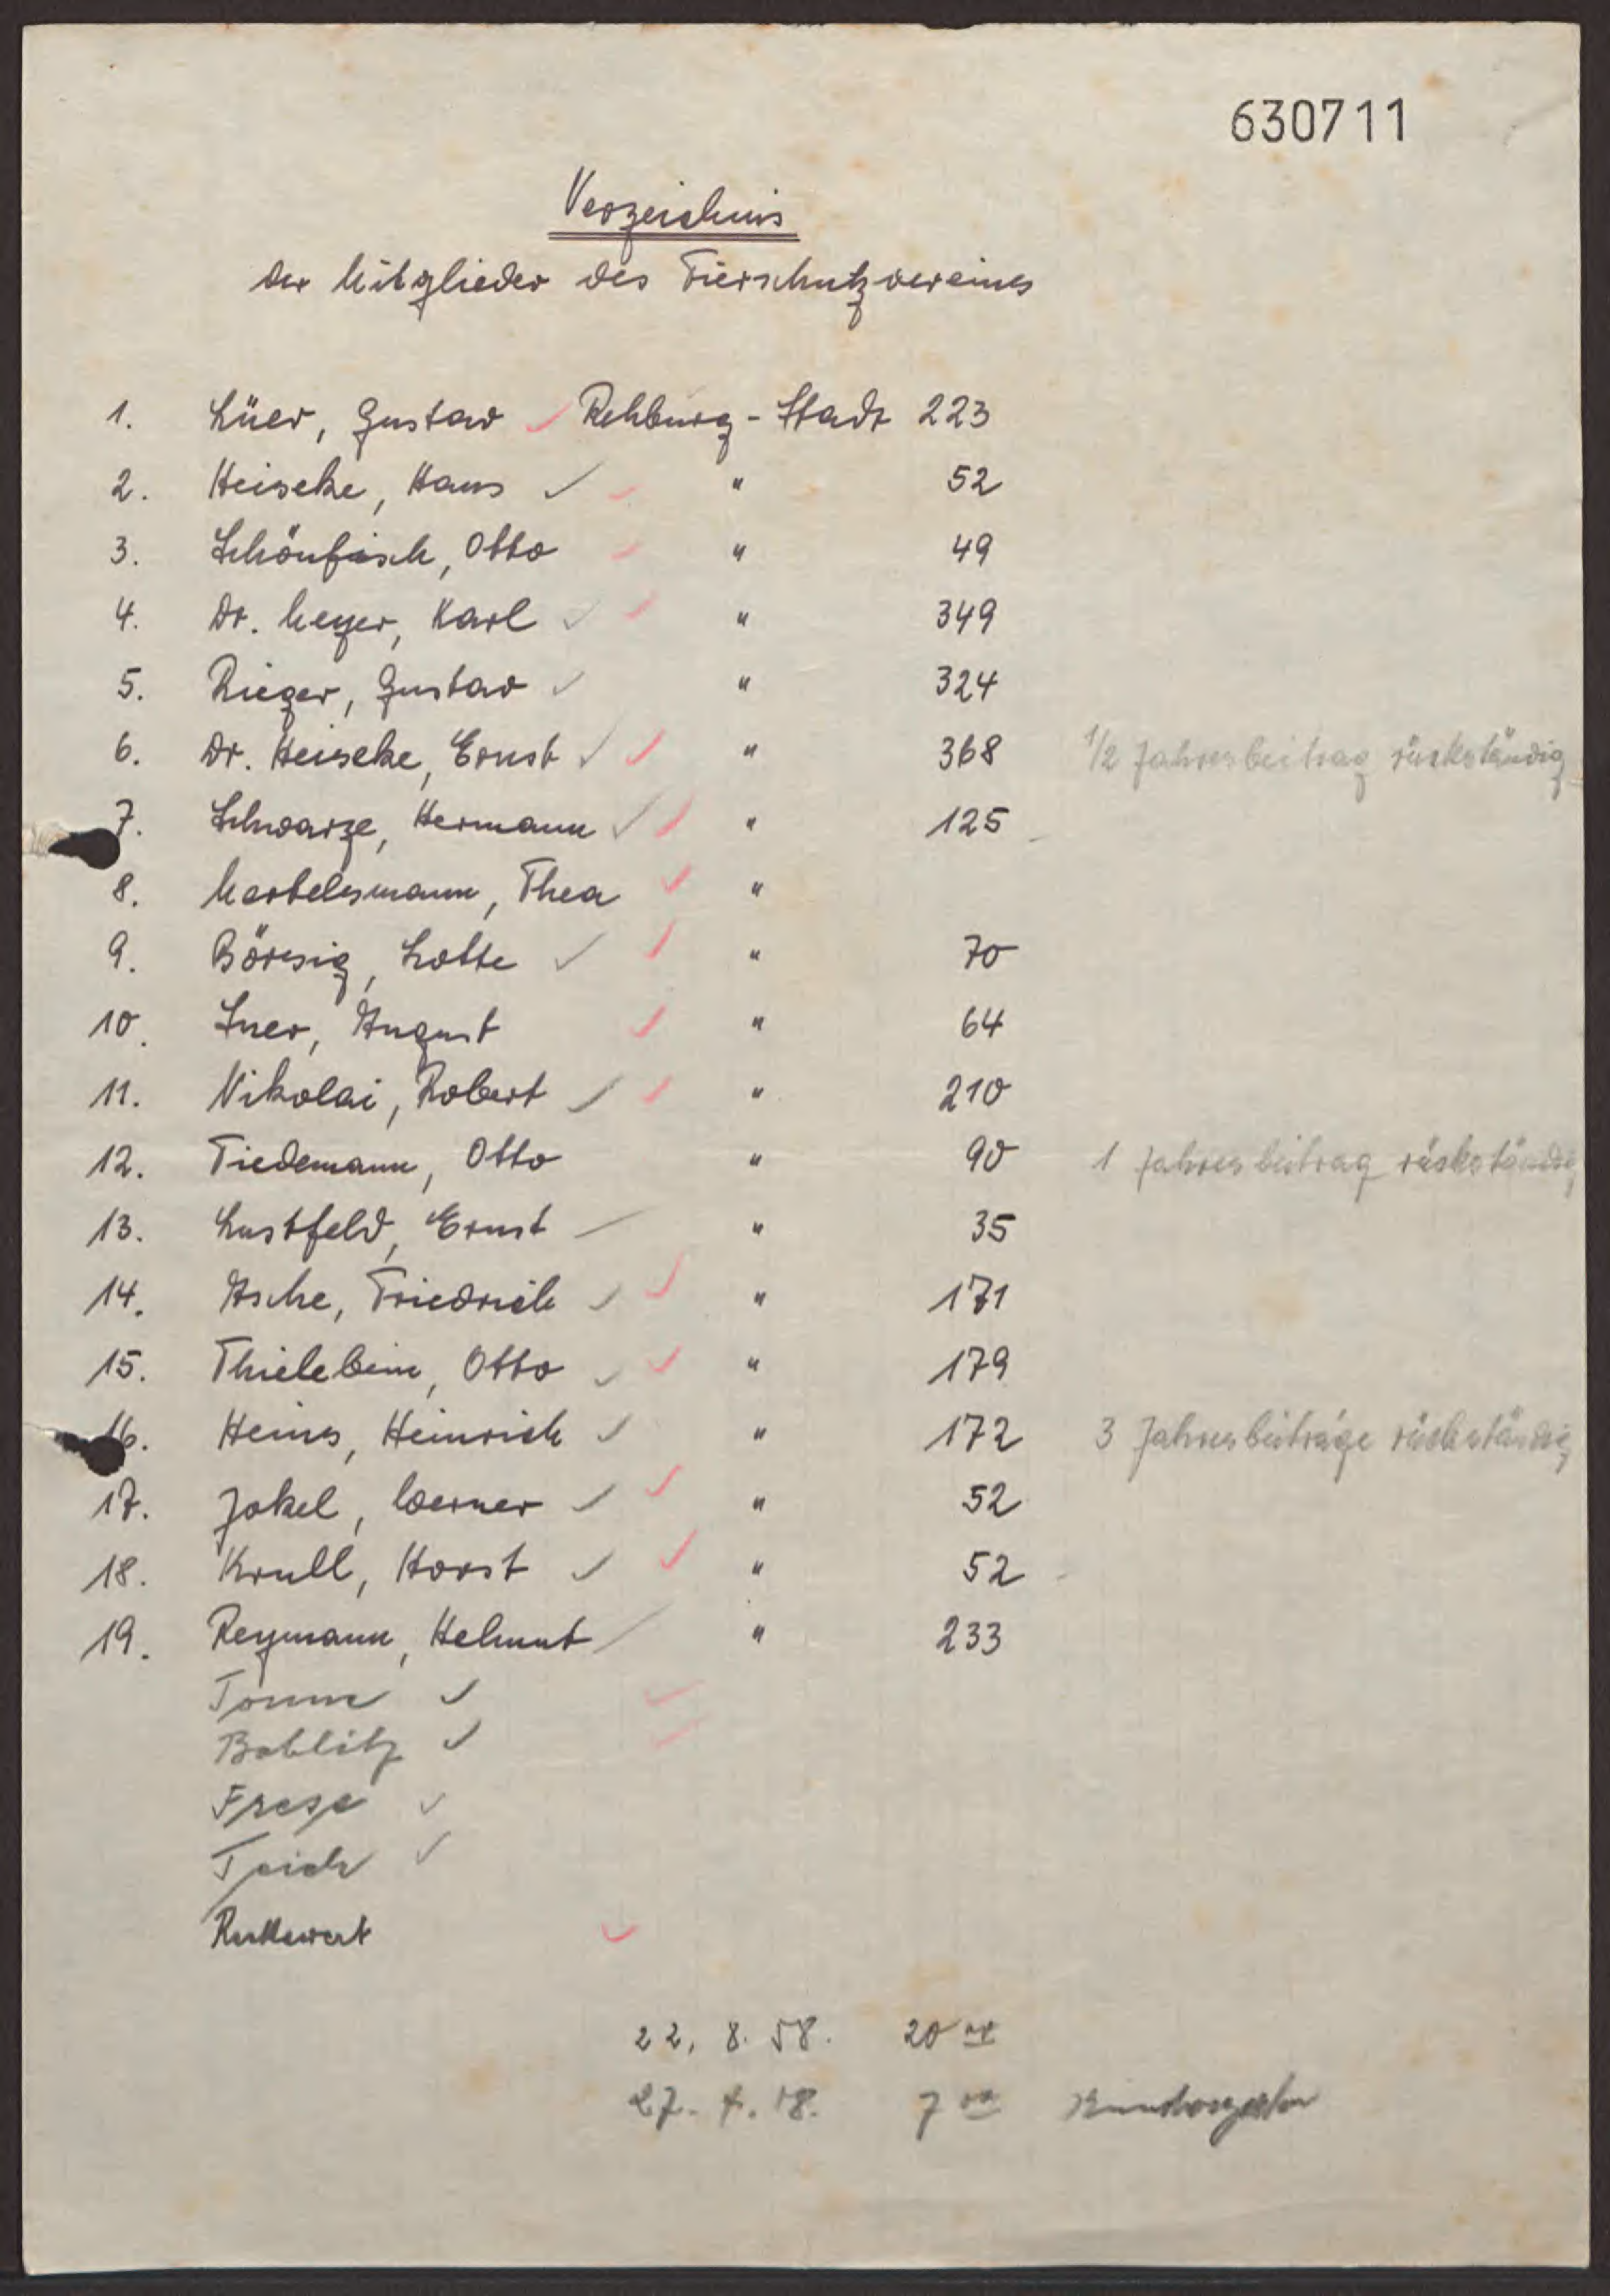 630711
Verzeichnis
der Mitglieder des Tierschutzvereines
1. Lüer, Gustav ✓ Rehburg-Stadt 223
2. Heiseke, Hans ✓ ✓ " 52
3. Schönfisch, Otto ✓ " 49
4. Dr. Meyer, Karl ✓ ✓ " 349
5. Rieger, Gustav ✓ " 324
6. Dr. Heiseke, Ernst ✓ ✓ " 368 1/2 Jahresbeitrag rückständig
7. Schwarze, Hermann ✓ ✓ " 125
8. Mertelsmann, Thea ✓ "
9. Börsig, Lotte ✓ ✓ " 70
10. August ✓ " 64
11. Nikolai, Robert ✓ ✓ " 210
12. Tiedemann, Otto " 90 1 Jahresbeitrag rückständig
13. Lustfeld, Ernst " 35
14. Asche, Friedrich ✓ ✓ " 171
15. Thielebein, Otto ✓ ✓ " 179
16. Heins, Heinrich ✓ " 172 3 Jahresbeiträge rückständig
17. Jokel, Werner ✓ ✓ " 52
18. Krull, Horst ✓ ✓ " 52
19. Reymann, Helmut " 233
Tonne ✓ ✓
Boblitz ✓ ✓
Frese ✓
Teich ✓
✓
22. 8. 58. 20
27. 7